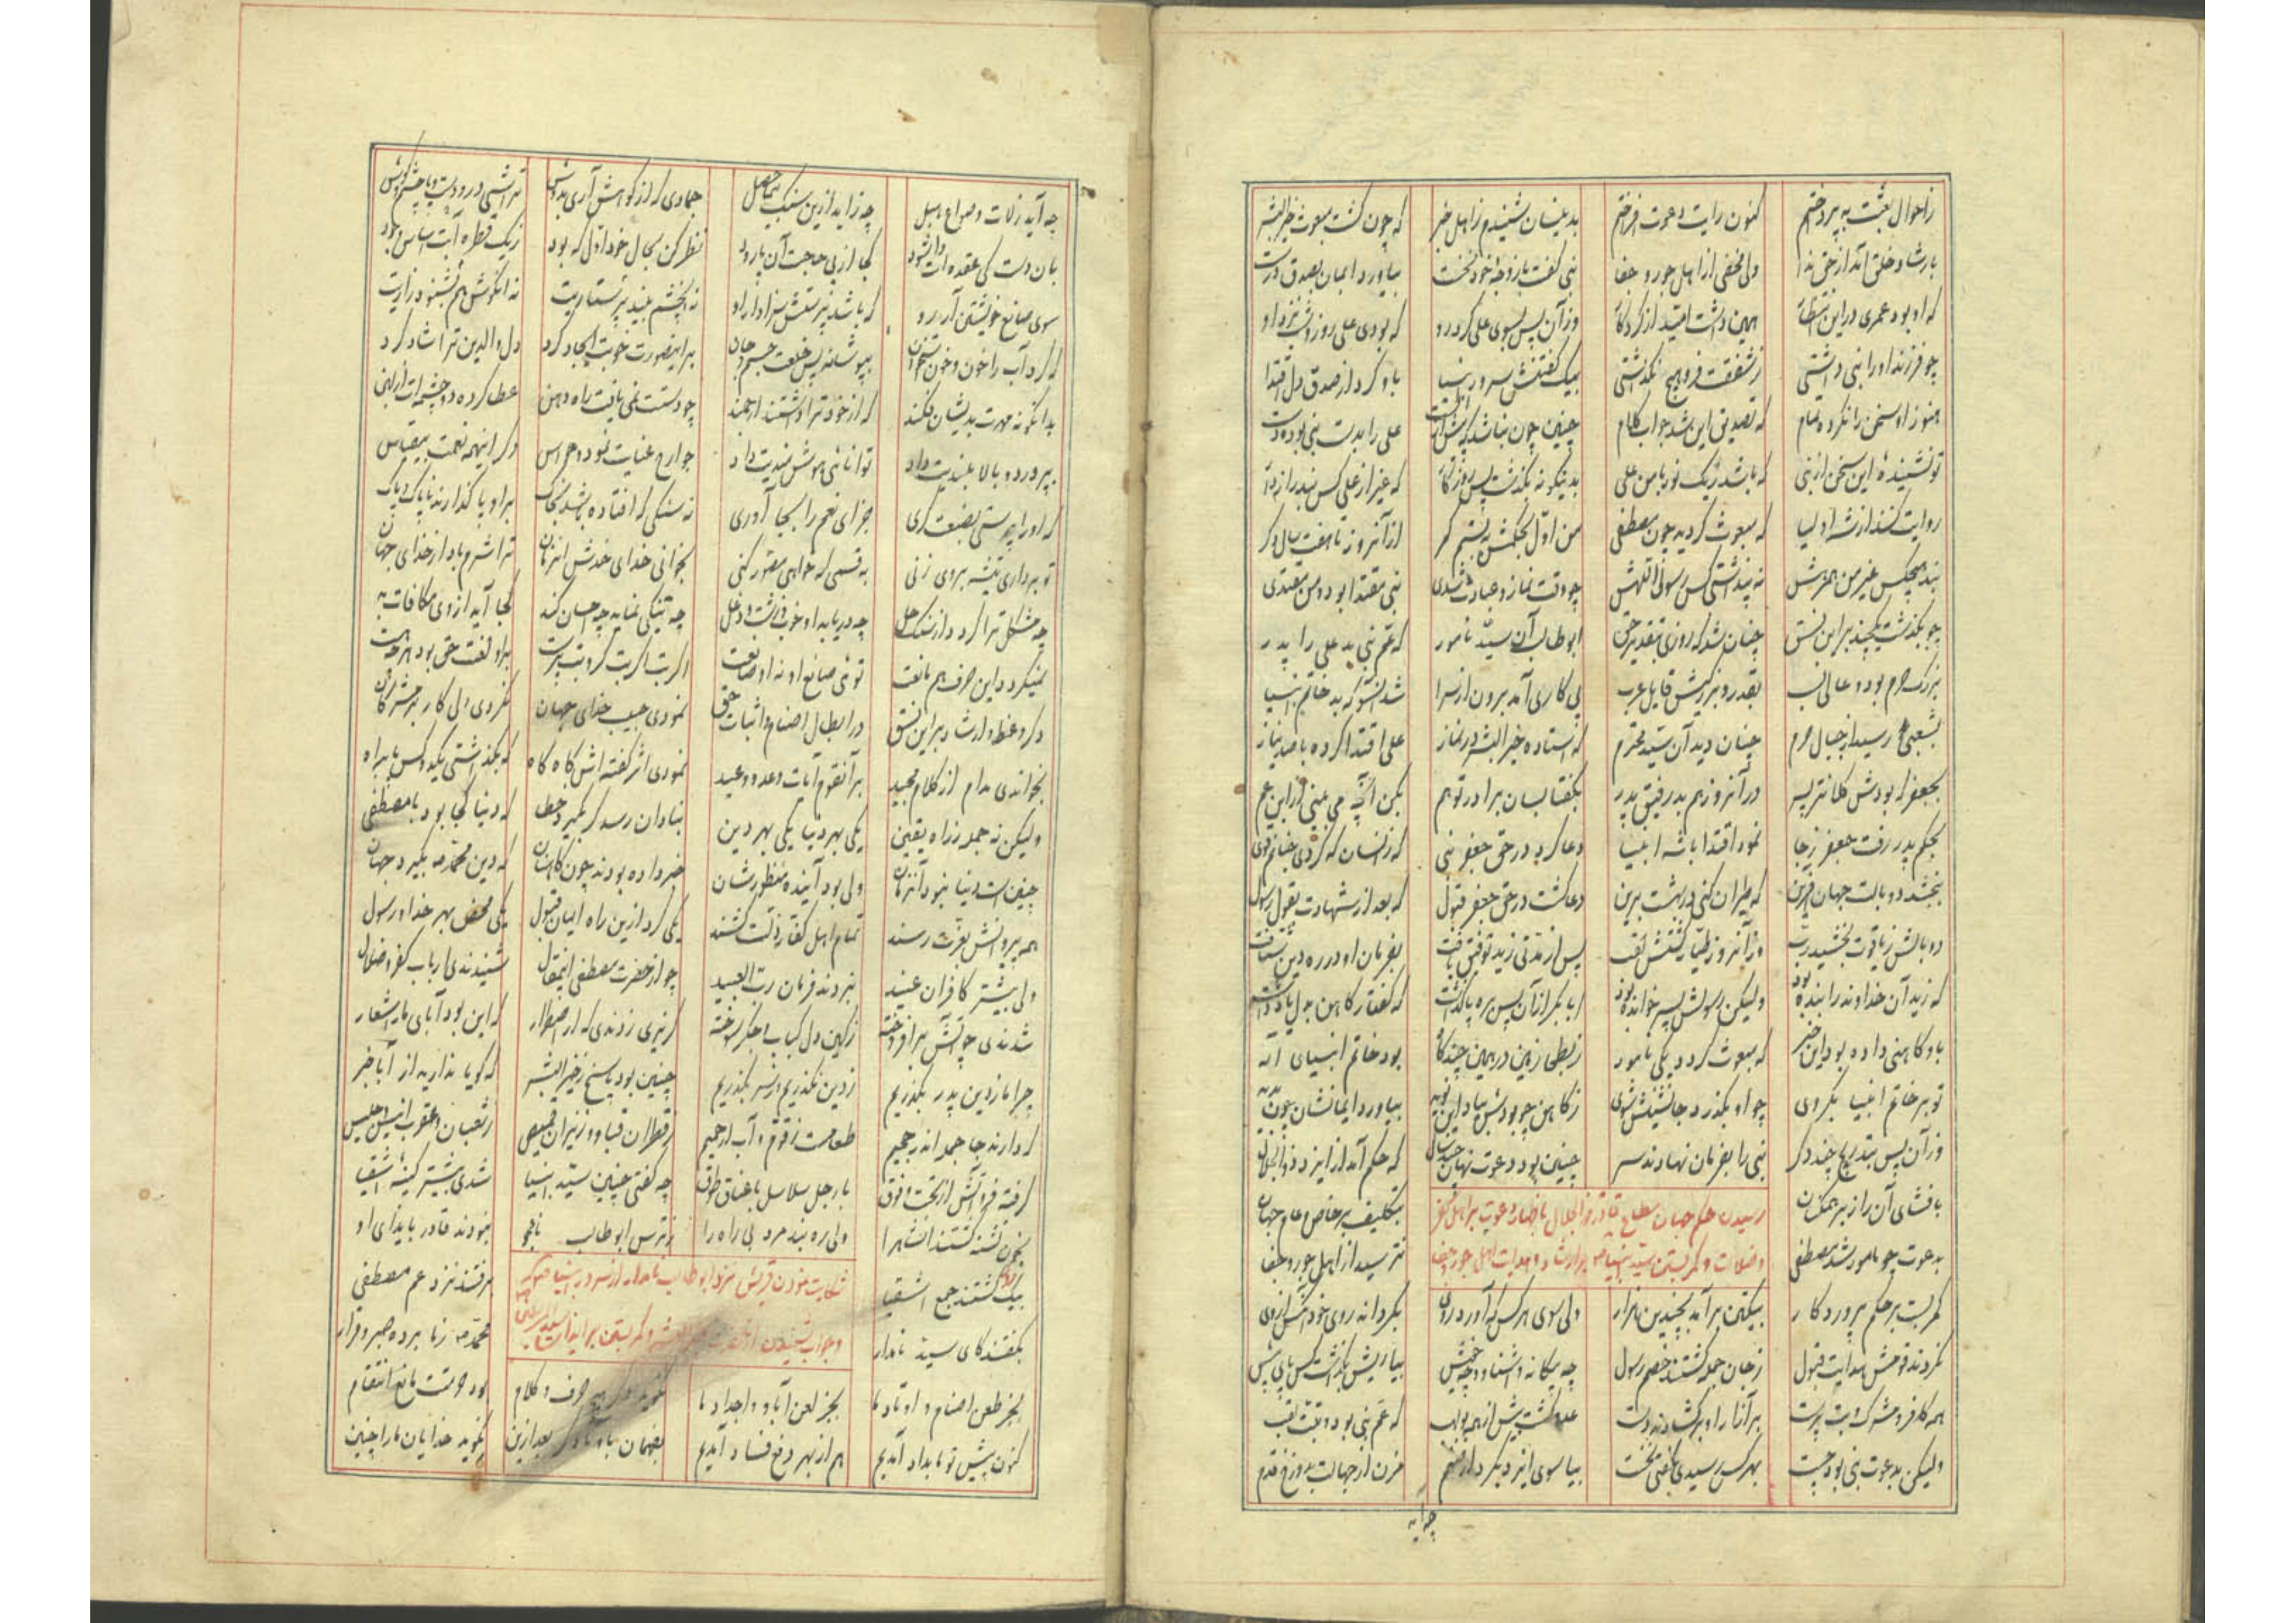 ز احوال بعثت چه پرداختم کنون رایت دعوت افراختم بدینسان شنیدم ز اهل خبر که چون گشت مبعوث خیر البشر
بارشاد خلق آمد از حق ندا ولی مخفی از اهل جور و جفا نبی گفت با زوجهٔ خود نخست بیاورد ایمان بصدق درست
که او بود عمری در این انتظار همین داشت امید از کردگار وز آن پس بسوی علی کرد رو که بودی علی روز و شب نزد او
چو فرزند او را نبی داشتی ز شفقت فرو هیچ نگذاشتی بیک گفتنش سرور انبیا باو کرد از صدق دل اقتدا
هنوز او سخن را نکرده تمام که تصدیق این شد جواب کلام چنین چون نباشد علی را بدست نبی بوده دست
تو نشنیدهٔ این سخن از نبی که باشد ز یک نور با من علی بدینگونه بگذشت پس روزگار که غیر از علی کس نبد راز دار
روایت کنند از شه اولیا که مبعوث گردید چون مصطفی من اول بحکمش ببستم کمر از آنروز تا هفت سال دگر
نبد هیچکس غیر من همرهش نه پنداشتی کس رسول اللهش چو وقت نماز و عبادت شدی نبی مقتدا بود و من مقتدی
چو بگذشت یکچند بر این نسق چنان شد که روزی بتقدیر حق ابوطالب آن سید نامور که عم نبی بد علی را پدر
بزرگ حرم بود و عالی نسب بقدر و بزرگیش قایل عرب پی کاری آمد برون از سرا شد آنسو که بد خاتم انبیا
بشعبی رسید از جبال حرم چنان دید آن سید محترم که استاده خیر البشر در نماز علی اقتدا کرده با صد نیاز
بجعفر که بودش کلانتر پسر در آنروز هم بد رفیق پدر بگفتا بسان برادر تو هم بکن آنچه می بینی از ابن عم
بحکم پدر رفت جعفر ز جا نمود اقتدا با شه انبیا دعا کرد در حق جعفر نبی که زانسان که کردی جناحم قوی
ببخشد دو بالت جهان آفرین که طیران کنی در بهشت برین دعا گشت در حق جعفر قبول که بعد از شهادت بقول رسول
دو بالش ز یاقوت بخشید رب وز آنروز طیار گشتش لقب پس از مدتی زید توفیق یافت بفرمان او در ره دین شتافت
که زید آن خداوند را بنده بود ولیکن رسولش پسر خوانده بود ابابکر از آن پس بره پا گذاشت که گفتار کاهن بدل یاد داشت
باو کاهنی داده بود این خبر که مبعوث گردد یکی نامور ز بطحی زمین در همین چندگاه بود خاتم انبیای اله
تو بر خاتم انبیا بگروی چو او بگذرد جانشینش شوی ز کاهن چو بودش بیاد این نوید بیاورد ایمانشان چون بدید
وز آن پس بتدریج چند دگر نبی را بفرمان نهادند سر چنین بود دعوت نهان چند سال که حکم آمد از ایزد ذو الجلال
بافشای آن راز بر همکنان رسیدن حکم جهان مطاع قادر ذو الجلال باظهار دعوت بر اهل کفر بتکلیف بر خاص و عام جهان
بدعوت چو مامور شد مصطفی و ضلالت و کمر بستن سید انبیا بر ارشاد و هدایت اهل جور و جفا نترسید از اهل جور و جفا
کمر بست بر حکم پروردگار بیکتن بر آمد بچندین هزار ولی سوی هر کس که آورد روی بگرداند روی خود آنکس ازوی
نکردند قومش هدایت قبول ز جان جمله گشتند خصم رسول چه بیگانه و آشنا و چه خویش بیاریش نگذاشت کس پای پیش
همه کافر و مشرک و بت پرست بر آزار او بر گشادند دست عدو گشت بیش از همه بولهب که عم نبی بود و تبت لقب
ولیکن بدعوت نبی بود چست بهر کس رسیدی بگفتی نخست بیا سوی ایزد بگرد از صنم مزن از جهالت بدوزخ قدم
چه آید
چه آید ز لات و سواع و هبل چه زاید ازین سنگ بیحاصل جمادی که از کوهش آری بدوش تراشی درو دست و پا چشم و گوش
بآن دست کی عقده ات وا شود کجا از پی حاجت آن پا رود نظر کن بحال خود اول که بود ز یک قطره آبت اساس وجود
سوی صانع خویشتن آر رو که باشد پرستش سزاوار او نه آنچشم بیند پرستاریت نه آنگوش هم بشنود زاریت
که کرد آب را خون و خون بپوشاند پس خلعت جسم و جان بر این صورت خوبت ایجاد کرد دل والدین ترا شاد کرد
بدانگونه مهرت بدیشان فکند که از خود ترا داشتند ارجمند چو دستت نمی یافت راه دهن عطا کرده دو چشمه ات از لبن
بپرورد و بالا بلندیت داد توانائی و هوشمندیت داد جوارح عنایت نمود و حواس دگر اینهمه نعمت بیقیاس
که او را پرستی بصنعت گری جزای نعم را بجا آوری نه سنگی که افتاده باشد بخاک بر او پا گذارند ناپاک و پاک
تو برداری تیشه بروی زنی بقسمی که خواهی مصور کنی بخوانی خدای خودش آنزمان ترا شرم باد از خدای جهان
چه مشکل ترا گردد از سنگ حل چه دریابد او خوب و زشت و دغل چه نیکی نماید چه احسان کند کجا آید از وی مکافات به
نمیگردد این حرف هم مانعت توئی صانع او نه او صانعت اگر بت اگر بت گر و بت پرست بر او لعنت حق بود هر چه هست
دگر وعظ و ارشاد بر این نسق در ابطال اصنام و اثبات حق نمودی حبیب خدای جهان نکردی ولی کار بر مشرکان
بخواندی مدام از کلام مجید بر آنقوم آیات وعد و وعید نمودی اثر گفته اش گاه گاه که بگذاشتی یکدو کس پا براه
ولیکن نه جمله ز راه یقین یکی بهر دنیا یکی بهر دین بنادان رسد گر بگیرد خطا که دنیا کجا بود با مصطفی
چنین است دنیا نبود آنزمان ولی بود آینده منظورشان خبر داده بودند چون کاهنان که دین محمد بگیرد جهان
همه پیروانش بعزت رسند تمام اهل کفار ذلت کشند یکی کرد ازین راه ایمان قبول یکی محض بهر خدا و رسول
ولی بیشتر کافران عنید نبردند فرمان رب العبید چو از حضرت مصطفی اینمقال شنیدندی ارباب کفر و ضلال
شدندی چو آتش بر افروخته ز کین دل کباب و جگر سوخته گریزی زدندی که از اضطرار که این بود آبای ما را شعار
چرا ما ز دین پدر بگذریم ز دین نگذریم و ز سر بگذریم چنین بود پاسخ ز خیر البشر که گویا ندارید از آبا خبر
که دارند جا جمله اندر جحیم طعامست زقوم و آب از حمیم ز قطران قبا و ز نیران قمیص ز ثعبان و عقرب انیس و جلیس
گرفته فرو آتش از تحت و فوق بارجل سلاسل باعناق طوق چه گفتی چنین سید انبیا شدی بیشتر کینهٔ اشقیا
بخون تشنه گشتند آنشاه را ولی ره نبد مرد بی راه را ز ترس ابوطالب نامجو نبودند قادر بایذای او
یک روز گشتند جمع اشقیا شکایت نمودن قریش نزد ابوطالب نامدار از سرور انبیا برفتند نزد عم مصطفی
بگفتند کای سید نامدار و جواب شنیدن و کمر بستن بر ایذای محمد ز ما برده صبر و قرار
بجز طعن اصنام و اوثان ما بجز لعن آبا و اجداد ما نگوید دگر هیچ حرف و کلام بود حرمتت مانع انتقام
کنون پیش تو ما بداد آمدیم هم از بهر دفع فساد آمدیم بفهمان باو تا دگر بعد ازین نگوید خدایان ما را چنین